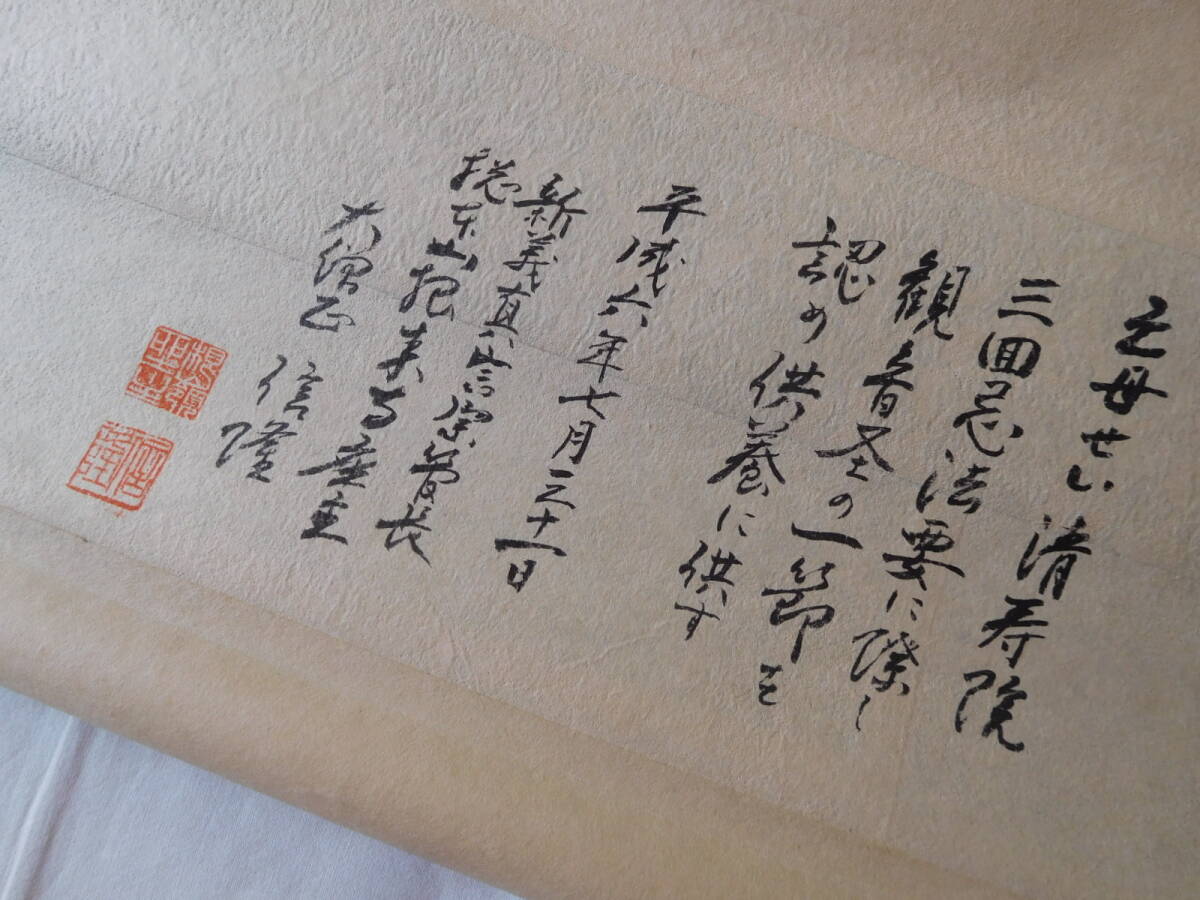 亡母せい清寿院
三回忌法要に際し
観音圣の一節を
認め供養に供す
平成六年七月三十一日
新義真言宗管長
総本山根来寺座主
大僧正 信隆